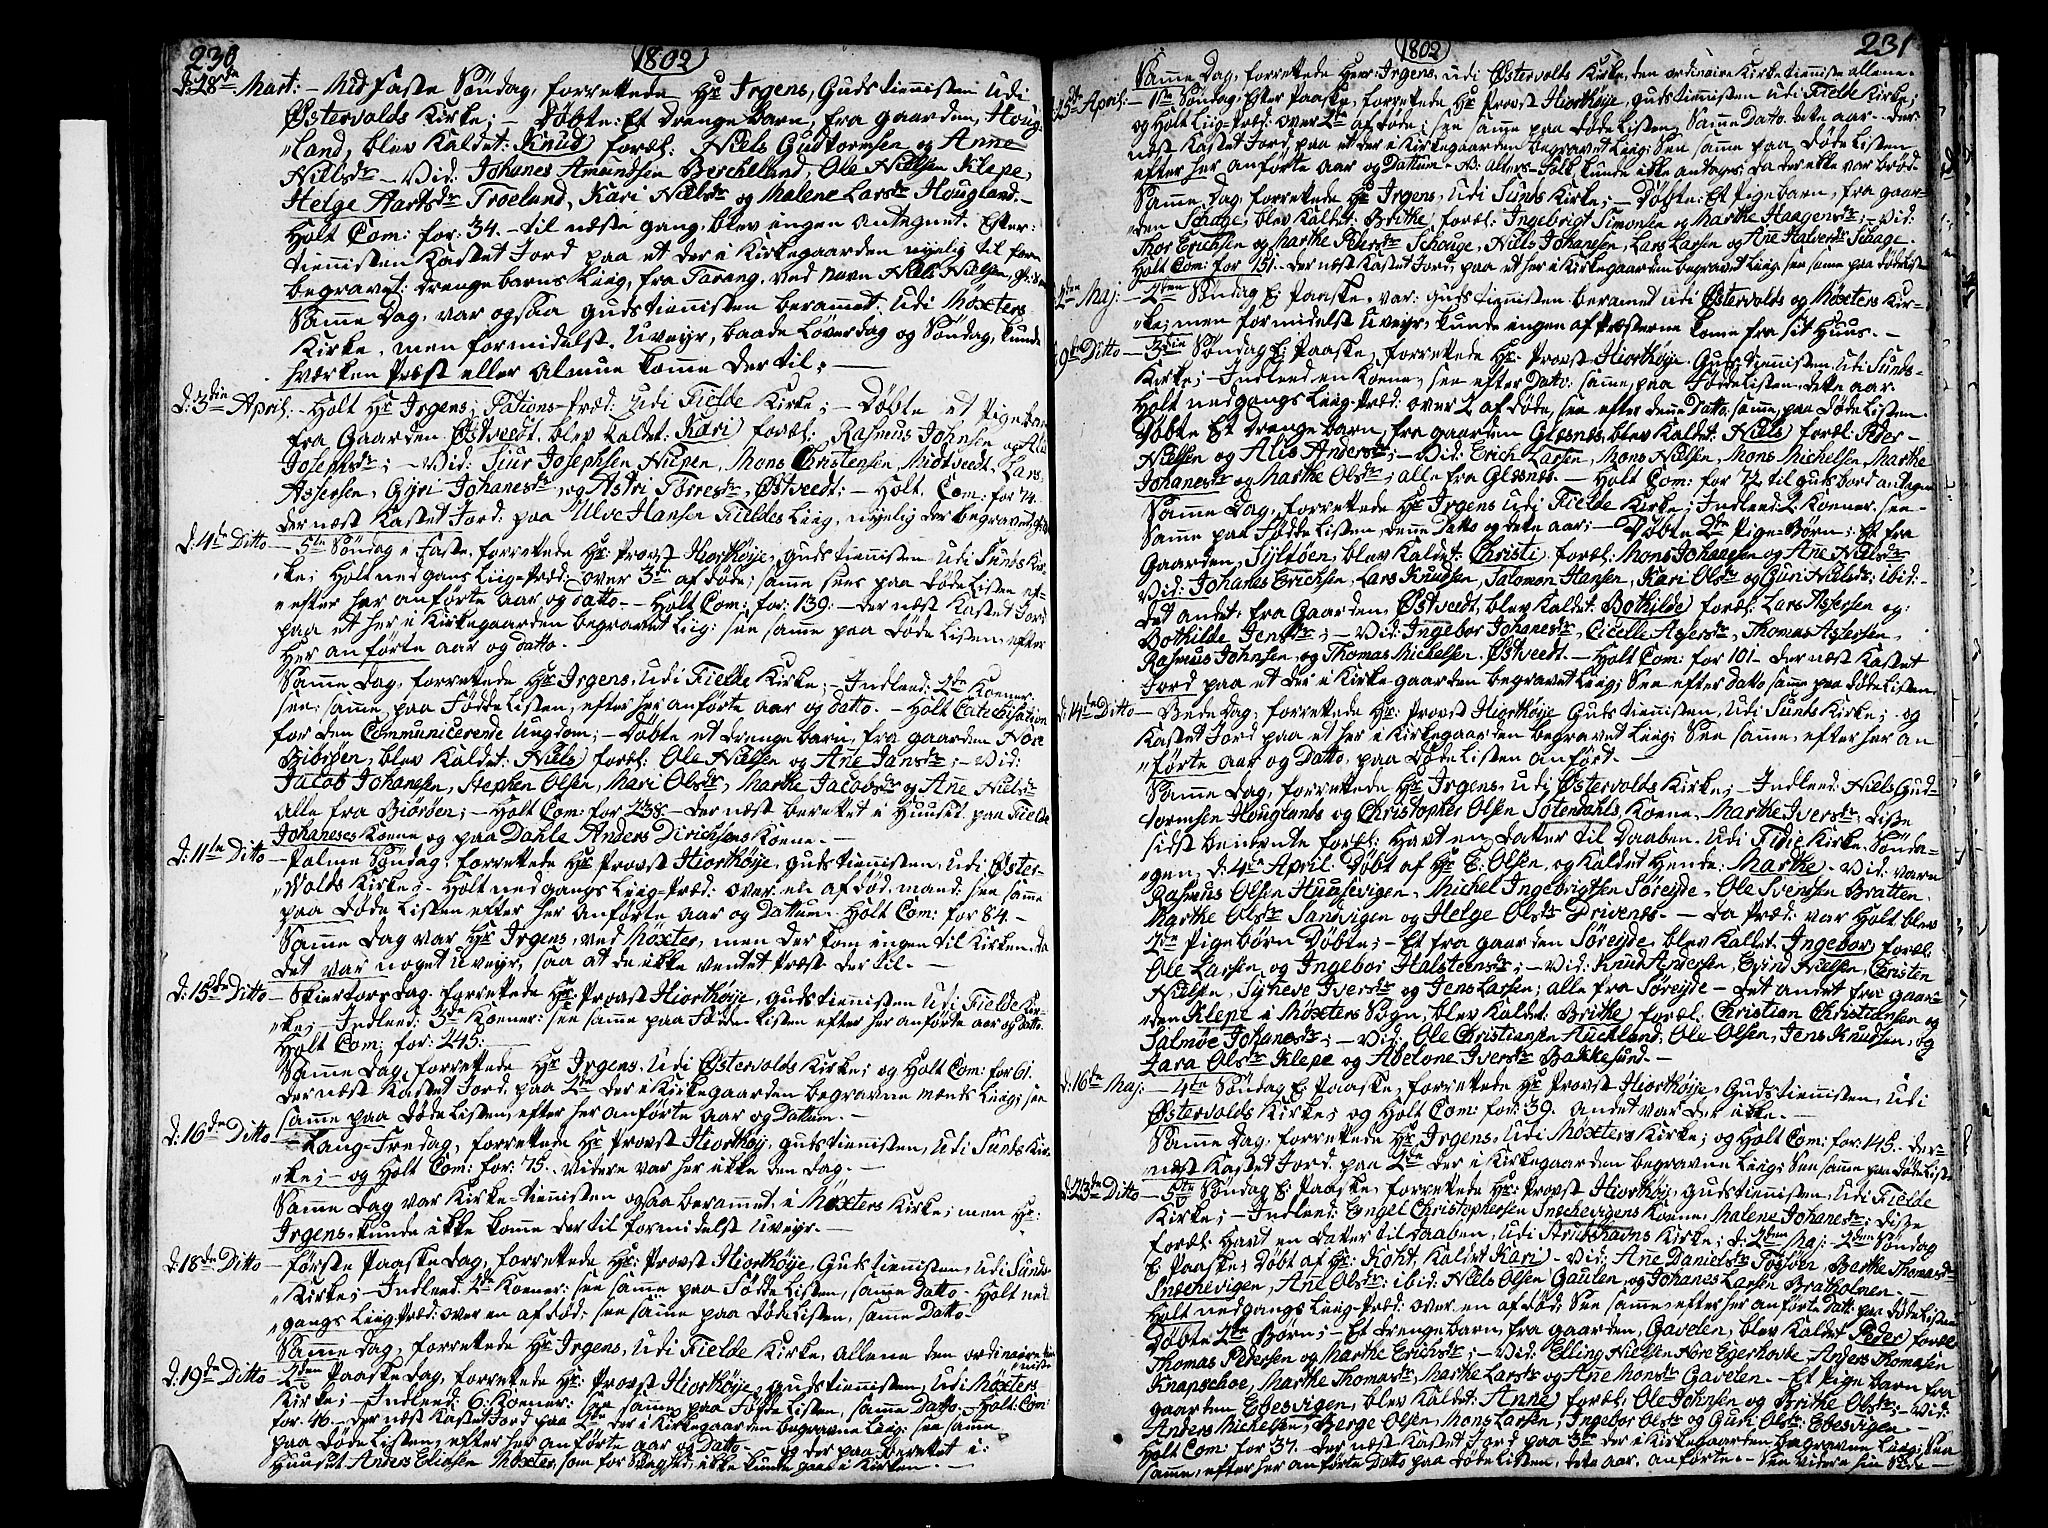 230
1802
d: 28de Mart: – Mid faste Söndag, forrettede Hr Irgens, Guds tiennisten Udi
Østervolds Kirke; – Döbte: Et drenge barn, fra gaarden, Houg-
"land, blev kaldet: Knud) foræl: Niels Guttormsen og Anne
Nielsdr – Vid: Johanes Amundsen Berchelland, Ole Nielsen Klepe,
Helge Aartsdr Troeland, Kari Nielsdr og Malene Larsdr Hougland. –
Holt Com: for: 34. – til næste gang, blev ingen antegnet. Efter:
tiennisten kastet Jord paa et der i Kirkegaarden nyelig til forn
begravet: drenge barns Liig, fra Tarang, ved navn Niels Nielsen,
Samme Dag, var ogsaa Guds tiennisten berammet, Udi Möxters
Kirke, men formidelst Uveyr, baade Löverdag og Söndag, kunde
hværken Præst eller Almue komme der til: –
d: 3die April: – Holt Hr Irgens, Pations-Præd: Udi Fielde Kirke; – Döbte et Pige barn
fra Gaarden Østvedt, blev kaldet: Kari) foræl: Rasmus Johnsen og
Josephsdr; – Vid: Siur Josephsen Nilpen, Mons Christensen, Midtveedt, Lars
Assersen, Gyri Johanesdr, og Astri Torresdr, Østveedt: – Holt Com: for 74
der næst kastet Jord: paa Ulve Hansen Fieldes Liig, nyelig der begravet
d: 4de Ditto – 5te Söndag i Faste, forrettede Hr: Provst Hiorthöye, Guds tiennisten Udi Sunds Kir-
"ke; Holt ned gangs Liig-Præd: over 3de af döde; samme sees paa döde Listen ef-
"efter her anförte aar og datto – Holt Com: for: 139: – der næst kastet Jord
paa et her i Kirkegaarden begravet Liig: see samme paa döde Listen, efter
her anförte aar og datto. –
Samme Dag, forrettede Hr Irgens, Udi Fielde Kirke; – Indleed: 2de Koener
see: samme, paa Födde Listen, efter her anförte aar og datto. – Holt Catechisation
for den Communicerende Ungdom; – Döbte et drenge barn, fra gaarden Nore
Biörsöen, blev kaldet: Niels) foræl: Ole Nielsen og Ane Jansdr; – Vid:
Jacob Johansen, Stephen Olsen, Mari Olsdr, Marthe Jacobsdr og Ane Nielsdr
alle fra Biörsöen; – Holt Com: for 238. – der næst berettet i Huuset paa Fielde
Johaneses Koene og paa Dahle Anders Dirichsens Koene. –
d: 11te Ditto – Palme Söndag, forrettede Hr Provst Hiorthöye, Guds tiennisten, Udi Øster-
"volds Kirke; – Holt ned gangs Liig-Præd: over en af död, mand: see samme
paa döde Listen efter her anförte aar og Dattum. Holt Com: for 84. –
Samme Dag var Hr Irgens, ved Möxter, men der kom ingen til Kirken, da
det var noget Uveyr, saa at de ikke ventet Præst der til. –
d: 15de Ditto – Skiertorsdag forrettede Hr: Provst Hiorthöye, Guds tiennisten Udi Fielde Kir-
"ke; – Indleed: 3de Koener: see samme paa Födde Listen efter her anförte aar og datto.
Holt Com: for: 245: –
Samme Dag, forrettede Hr Irgens, Udi Østervolds Kirke; og Holt Com: for 61.
der næst kastet Jord, paa 2de der i Kirkegaarden begravne mends Liig; see
samme paa döde Listen, efter her anförte aar og Dattum. –
d: 16de Ditto – Lang-Fredag, forrettede Hr: Provst Hiorthöy, Guds tiennisten, Udi Sunds Kir-
"ke; – og Holt Com: for: 75. videre var her ikke den Dag. –
Samme Dag var Kirke-tiennisten ogsaa berammet, i Möxters Kirke; men Hr:
Irgens, kunde ikke komme der til formidelst Uveyr. –
d: 18de Ditto – förste Paaske dag, forrettede Hr: Provst Hiorthöye, Guds tiennisten, Udi Sunds
"Kirke; – Indleed 2de Koener: see samme paa Födde Listen, samme Datto. – Holt ned
"gangs Liig Præd: over en af död; see samme paa döde Listen, samme Datto –
Samme dag, forrettede Hr Irgens, Udi Fielde Kirke, allene den ordinaire tien
"niste
d: 19de Ditto – 2den Paaskedag, forrettede Hr: Provst Hiorthöye, Guds tiennisten, Udi Möxters
Kirke; – Indleed: 6 Koener: see samme paa Födde Listen, samme Datto – Holt Com:
for 46 – der næst kastet Jord paa 4de der i Kirkegaarden begravne Liig: see samme
paa döde Listen, efter her anförte aar og Datto. – og der paa berettet i:
Huuset Anders Eliasen Möxter, som for Svaghed, ikke kunde gaae i Kirken. –
1802
231
Samme Dag, forrettede Herr Irgens, Udi Østervolds Kirke, den ordinaire Kirketienniste allene. –
25de April: – 1ste Söndag, Efter Paaske, forrettede Hr Provst Hiorthöye, Guds tiennisten Udi Fielde Kirke;
og Holt Liig-Præd: over 2de af döde; see samme paa döde Listen, samme Dato. dette aar. – der-
næst kastet Jord, paa et der i Kirkegaarden begravet Liig; See samme paa, döde Listen
efter her anförte aar og Dattum – N: alders-folk, kunde ikke antages; da der ikke var bröd. –
Samme Dag, forrettede Hr Irgens, Udi Sunds Kirke; – Döbte: Et Pigebarn, fra gaar-
"den Schage, blev kaldet: Brithe) foræl: Ingebrigt Simonsen og Marthe Haagensdr; – Vid:
Thor Erichsen og Marthe Pedersdr Schouge, Niels Johansen, Lars Larsen og Ane Halversdr Schage.
Holt Com: for 151. – der næst kastet Jord, paa et her i Kirkegaarden begravet Liig: see samme paa döde Listen
2den Maj: – 2den Söndag E: Paaske, var: Guds tiennisten beramet Udi Østervolds og Möxters Kir-
"ke; men formidelst Uveyr, kunde ingen af Præsterne komme fra sit Huus. –
9de Ditto – 3die Söndag E: Paaske, forrettede Hr: Provst Hiorthöye, Guds tiennisten, Udi Sunds-
Kirke; – Indleed en Koene; see efter Datto: samme, paa Födde Listen, dette aar
Holt ned gangs Liig-Præd: over 2 af döde, see efter denne Datto: samme, paa döde Listen.
Döbte Et drenge barn, fra gaarden Glesnes, blev kaldet: Niels) foræl: Peder –
Nielsen og Alis Andersdr; – Vid: Erich Larsen, Mons Nielsen, Mons Michelsen, Marthe
Johanesdr og Marthe Olsdr; alle fra Glesnes. – Holt Com: for 72, til guds bord antagen
Samme Dag, forrettede Hr: Irgens Udi Fielde Kirke; Indleed 2 Koener, see –
Samme paa Födde Listen, denne Datto og dette aar; – Döbte 2de Pige-Börn; – Et fra
Gaarden, Syltöen, blev kaldet: Christi) foræl: Mons Johansen og Ane Nielsdr
Vid: Johanes Erichsen, Lars Knudsen, Salomon Hansen, Kari Olsdr og Guri Nielsdr; ibid: –
det andet: fra Gaarden, Østveedt, blev kaldet: Bothilde) foræl: Lars Assersen og:
Bothilde Jensdr; – Vid: Ingebor Johanesdr, Cicelle Assersdr, Thomas Assersen,
Rasmus Johnsen, og Thomas Michelsen, Østveedt. – Holt Com: for 101 – der næst kastet
Jord paa et der i Kirkegaarden begravet Liig; See efter Datto samme paa döde Listen
d: 14de Ditto – Bede dag; forrettede Hr: Provst Hiorthöye Guds tiennisten, Udi Sunds Kirke; – og
kastet Jord paa et her i Kirkegaarden begravet Liig; See samme, efter her an
"förte aar og Datto, paa döde Listen anfört. –
Samme Dag, forrettede Hr: Irgens, Udi Østervolds Kirke; – Indleed: Niels Gud-
tormsen Houglands og Christopher Olsen Sotendahls, Koene, Marthe Iversdr; disse
sidst benevnte foræl: Havt en datter til Daaben, Udi Fiele Kirke, Sönda-
"gen, d: 4de April: Döbt af Hr E: Olsen, og kaldet Hende: Marthe) – Vid: varn
Rasmus Olsen Huusevigen, Michel Ingebrigtsen Söreyde, Ole Svensen Bratten
Marthe Olsdr Sandvigen og Helge Olsdr Drivenes. – Da Præd: var Holt blev
2de Pige börn Döbte; – Et fra gaarden Söreyde, blev kaldet: Ingebor) foræl:
Ole Larsen og Ingebor Halsteensdr; – Vid: Knud Andersen, Eyvind Nielsen, Christen
Nielsen, Syneve Iversdr og Jens Larsen; alle fra Söreyde. – det andet: fra gaar-
"den Klepe i Möxters Sogn, blev kaldet: Brithe) foræl: Christian Christiansen og
Salmöe Johanesdr; – Vid: Ole Christiansen Huchland, Ole Olsen, Jens Knudsen, og
Zara Olsdr Klepe og Abelone Iversdr Bakkesund. –
d: 16de Maj: – 4te Söndag E: Paaske, forrettede Hr: Provst Hiorthöye, Guds tiennisten, Udi
Østervolds Kirke; og Holt Com: for: 39. andet var der ikke. –
Samme Dag, forrettede Hr: Irgens, Udi Möxters Kirke; og Holt Com: for: 145. der-
næst kastet Jord paa 2de der i Kirkegaarden begravne Liig; See samme paa döde Listen
d: 23de Ditto – 5te Söndag E: Paaske, forrettede Hr: Provst Hiorthöy, Guds tiennisten, Udi Fielde
Kirke; – Indleed: Engel Christophersen Snechevigens Koene, Malene Johanesdr; disse
foræl: Havt en datter til daaben, Udi Strudshavns Kirke; d: 2den Maj: 2den Söndag
E: Paaske; Döbt af Hr: Koht, kaldet Kari) – Vid: Ane Danielsdr Tofsöen, Berthe Thomasdr
Snechevigen, Ane Olsdr: ibid: Niels Olsen Gaulen, og Johanes Larsen Bratholmen. –
Holt ned gangs Liig-Præd: over en af död: See samme, efter her anförte Datt: paa döde Listen
Döbte 2de Börn; – Et drenge barn, fra gaarden, Gavelen, blev kaldet: Peder) foræl:
Thomas Pedersen og Marthe Erichsdr; – Vid: Elling Nielsen Nore Egerhovde, Anders Thomasen
Knapschoe, Marthe Thomasdr, Marthe Larsdr og Ane Monsdr Gavelen. – Et Pige barn fra
gaarden Ebesvigen, blev kaldet: Anne) foræl: Ole Johnsen og Brithe Olsdr; – Vid:
Anders Michelsen, Berge Olsen, Mons Larsen, Ingebor Olsdr og Guri Olsdr, Ebesvigen –
Holt Com: for 37. – der næst kastet Jord paa 3de der i Kirkegaarden begravne Liig; See
samme, efter her anförte Datto paa döde Listen, dette aar anförte. – See videre hin Side –